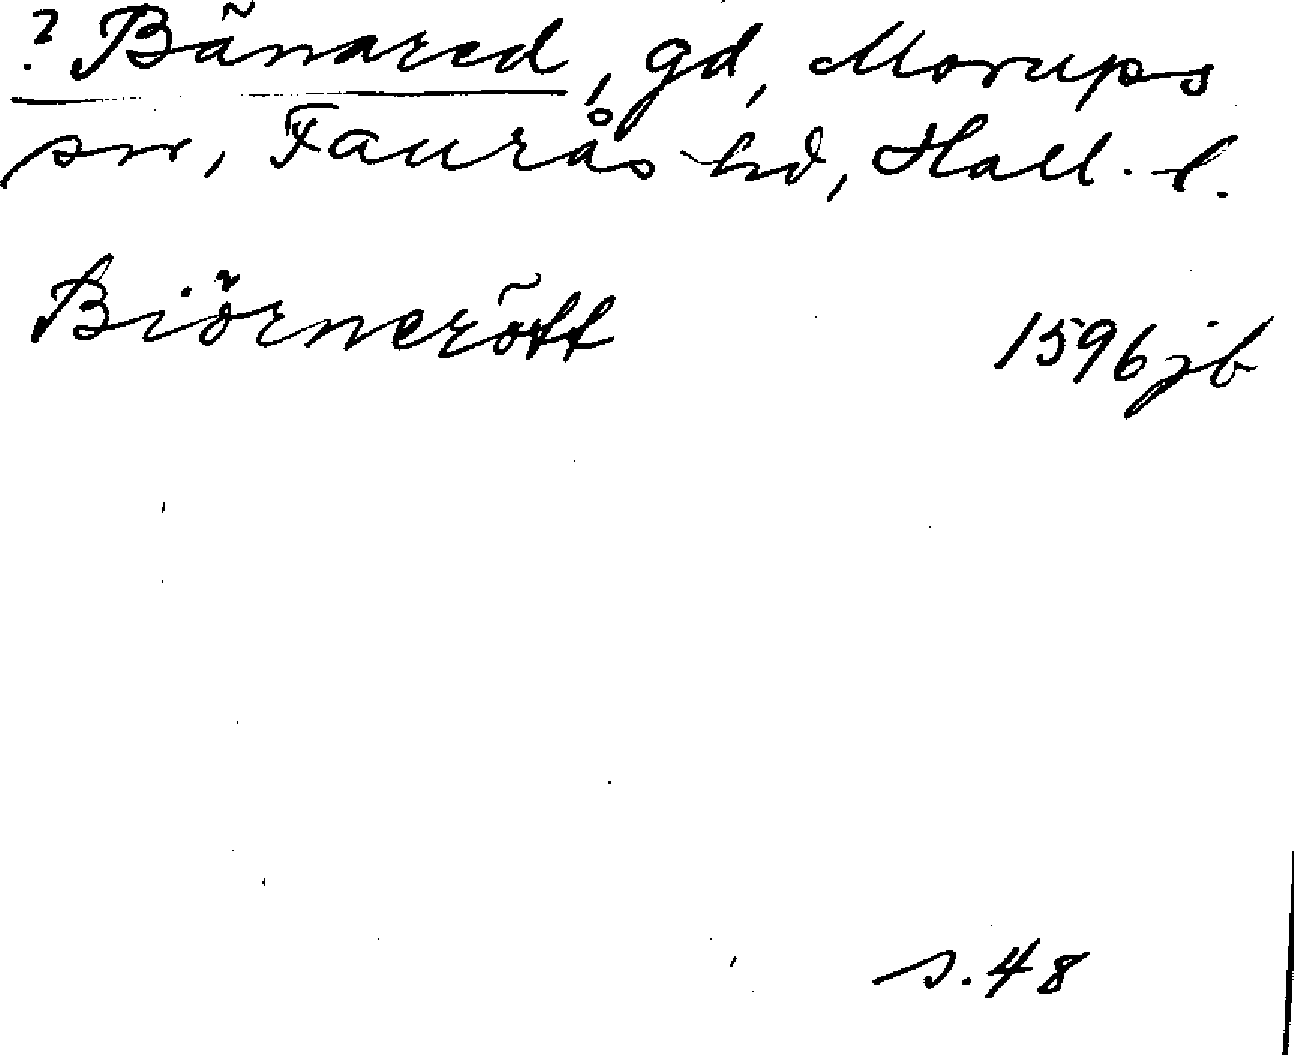 ? Bänared, gd, Morups
sn, Faurås hd, Hall. l.
Biörnerött 1596 jb
s. 48